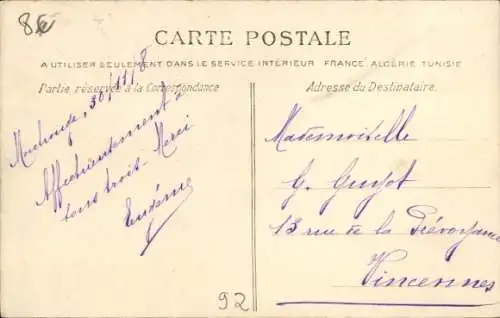 86
CARTE POSTALE
A UTILISER SEULEMENT DANS LE SERVICE INTÉRIEUR FRANCE, ALGÉRIE TUNISIE
Partie réservée à la Correspondance
Adresse du Destinataire.
30/11/8
Affectueusement à
tous trois - Merci
Eudème
Mademoiselle
G. Guyot
13 rue de la Prévoyance
Vincennes
92